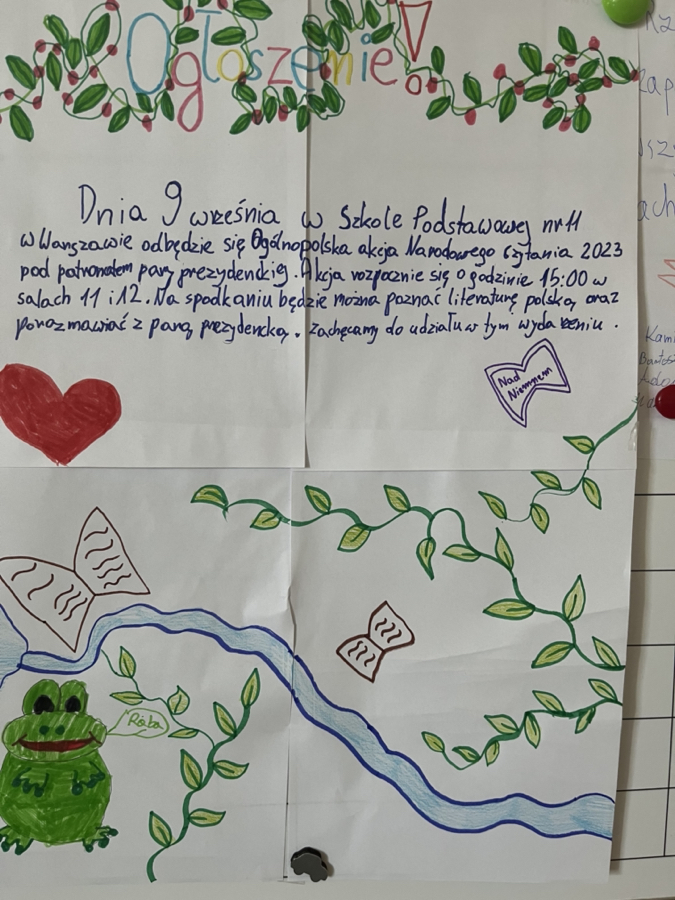 Ogłoszenie!
Dnia 9 września w Szkole Podstawowej nr 11
w Warszawie odbędzie się Ogólnopolska akcja Narodowego Czytania 2023
pod patronatem pary prezydenckiej. Akcja rozpocznie się o godzinie 15:00 w
salach 11 i 12. Na spodkaniu będzie można poznać literaturę polską oraz
porozmawiać z parą prezydencką. Zachęcamy do udziału w tym wydarzeniu.
Nad
Niemnem